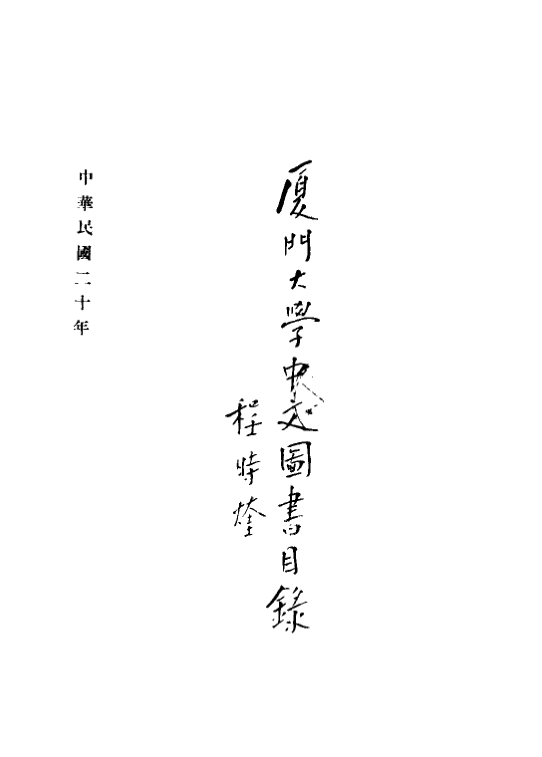 厦門大學中文圖書目錄
程時煃
中華民國二十年